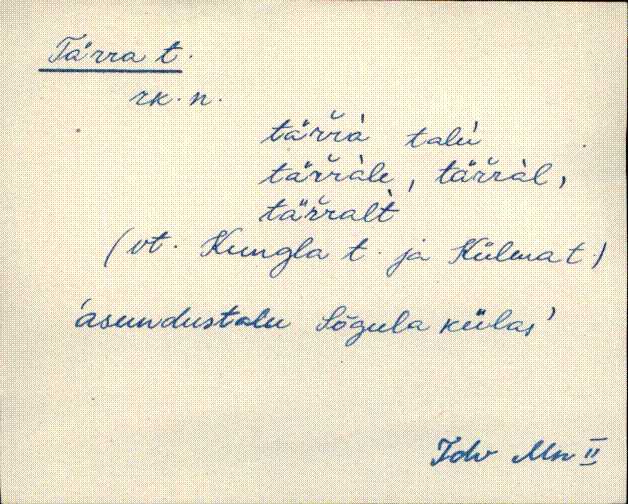 Tärra t.
rk. n.
tär̆rà talù
tär̆ràle, tär̆ràl,
tär̆ralt̀
(vt. Kungla t. ja Külma t)
'asundustalu Sõgula külas'
Jdv Mn II